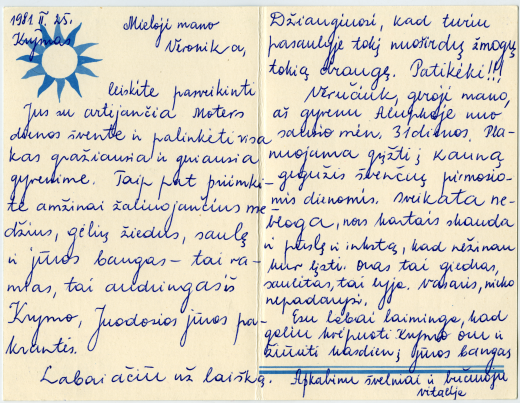 1981 II. 25.
Krymas
Mieloji mano
Veronika,
leiskite pasveikinti
Jus su artėjančia Moters
dienos švente ir palinkėti visa
kas gražiausia ir geriausia
gyvenime. Taip pat priimki-
te amžinai žaliuojančius me-
džius, gėlių žiedus, saulę
ir jūros bangas - tai ra-
mias, tai audringas iš
Krymo, Juodosios jūros pa-
krantės.
Labai ačiū už laišką.
Džiaugiuosi, kad turiu
pasaulyje tokį nuoširdų žmogų
tokią draugę. Patikėki!!!
Veručiuk, geroji mano,
aš gyvenu Alupkoje nuo
sausio mėn. 31 dienos. Pla-
nuojama grįžti į Kauną
gegužės švenčių pirmosio-
mis dienomis. Sveikata ne-
bloga, nors kartais skauda
ir petį ir inkstą, kad nežinau
kur lįsti. Oras tai giedras,
saulėtas, tai lyja. Vasaris, nieko
nepadarysi.
Esu labai laiminga, kad
galiu kvėpuoti Krymo oru ir
žiūrėti kasdien į jūros bangas
Apkabinu švelniai ir bučiuoju
Vitalija